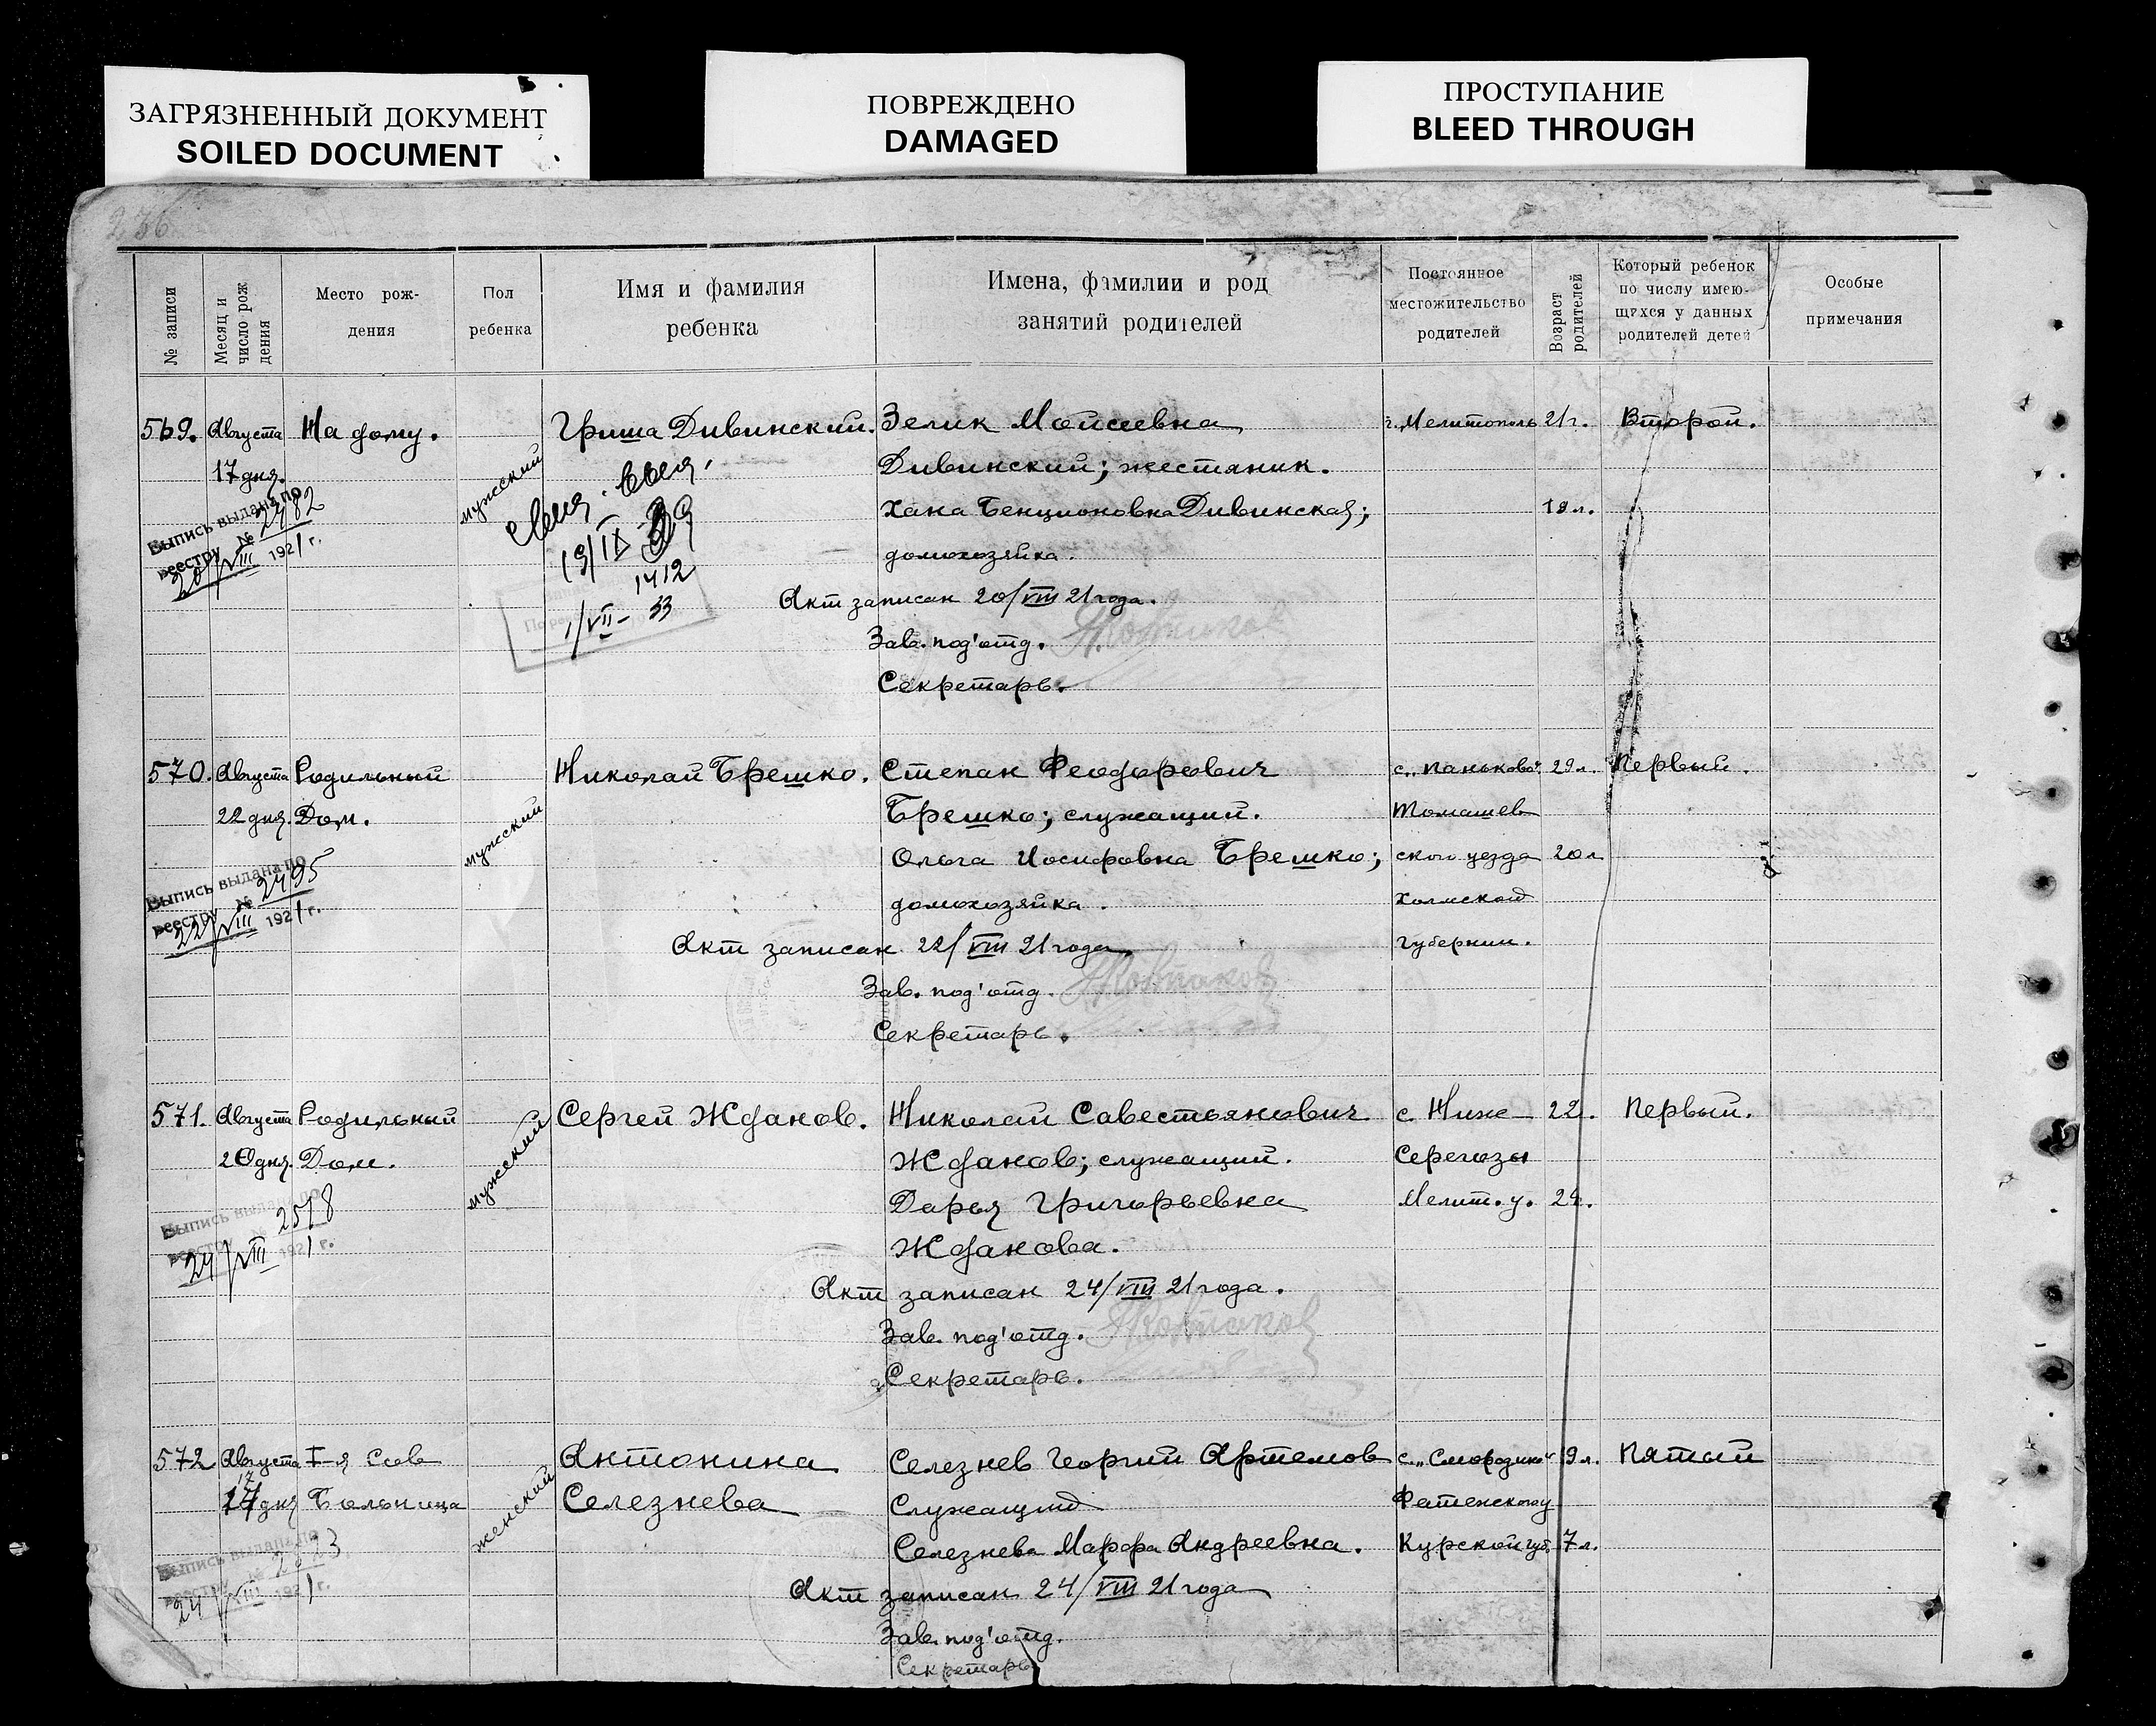 ЗАГРЯЗНЕННЫЙ ДОКУМЕНТ
SOILED DOCUMENT
ПОВРЕЖДЕНО
DAMAGED
ПРОСТУПАНИЕ
BLEED THROUGH
236
№ записи
Месяц и
число рож
дения
Место рож-
дения
Пол
ребенка
Имя и фамилия
ребенка
Имена, фамилии и род
занятий родителей
Постоянное
местожительство
родителей
Возраст
родителей
Который ребенок
по числу имею-
щихся у данных
родителей детей
Особые
примечания
569. Августа На дому. Гриша Дивинский. Зелик Мойсеевна г. Мелитополь 21 г. Второй.
17 дня. мужский Дивинский; жестаник.
Хана Бенционовна Дивинская; 19 л.
домохозяйка.
Выпись выдана по
реестру № 2482
20/VIII 1921 г.
19/IX
1412
1/VII - 33
Акт записан 20/VIII 21 года.
Зав. под'отд.
Секретарь.
570. Августа Родильный Николай Брешко. Степан Феодорович с. „Паньково" 29 л. Первый.
22 дня. Дом. мужский Брешко; служащий. Томашев
Ольга Иосифовна Брешко; ского уезда 20 л
домохозяйка. Холмской
Выпись выдана по
реестру № 2495
22/VIII 1921 г.
Акт записан 22/VIII 21 года. губернии.
Зав. под'отд.
Секретарь.
571. Августа Родильный Сергей Жданов. Николай Савестьянович с. Ниж- 22. Первый.
20 дня. Дом. мужский Жданов; служащий. Серегозы
Дарья Григорьевна Мелит. у. 24.
Жданова.
Выпись выдана по
реестру № 2518
24/VIII 1921 г.
Акт записан 24/VIII 21 года.
Зав. под'отд.
Секретарь.
572 Августа I-я Сов Антонина Селезнев Георгий Артемов с. „Смородино" 9 л. Пятый
17
17 дня Больница женский Селезнева Служащий Фатенскому
Селезнева Марфа Андреевна. Курской губ. 7 л.
Выпись выдана по
реестру №
24/VIII 1921 г.
Акт записан 24/VIII 21 года
Зав. под'отд.
Секретарь